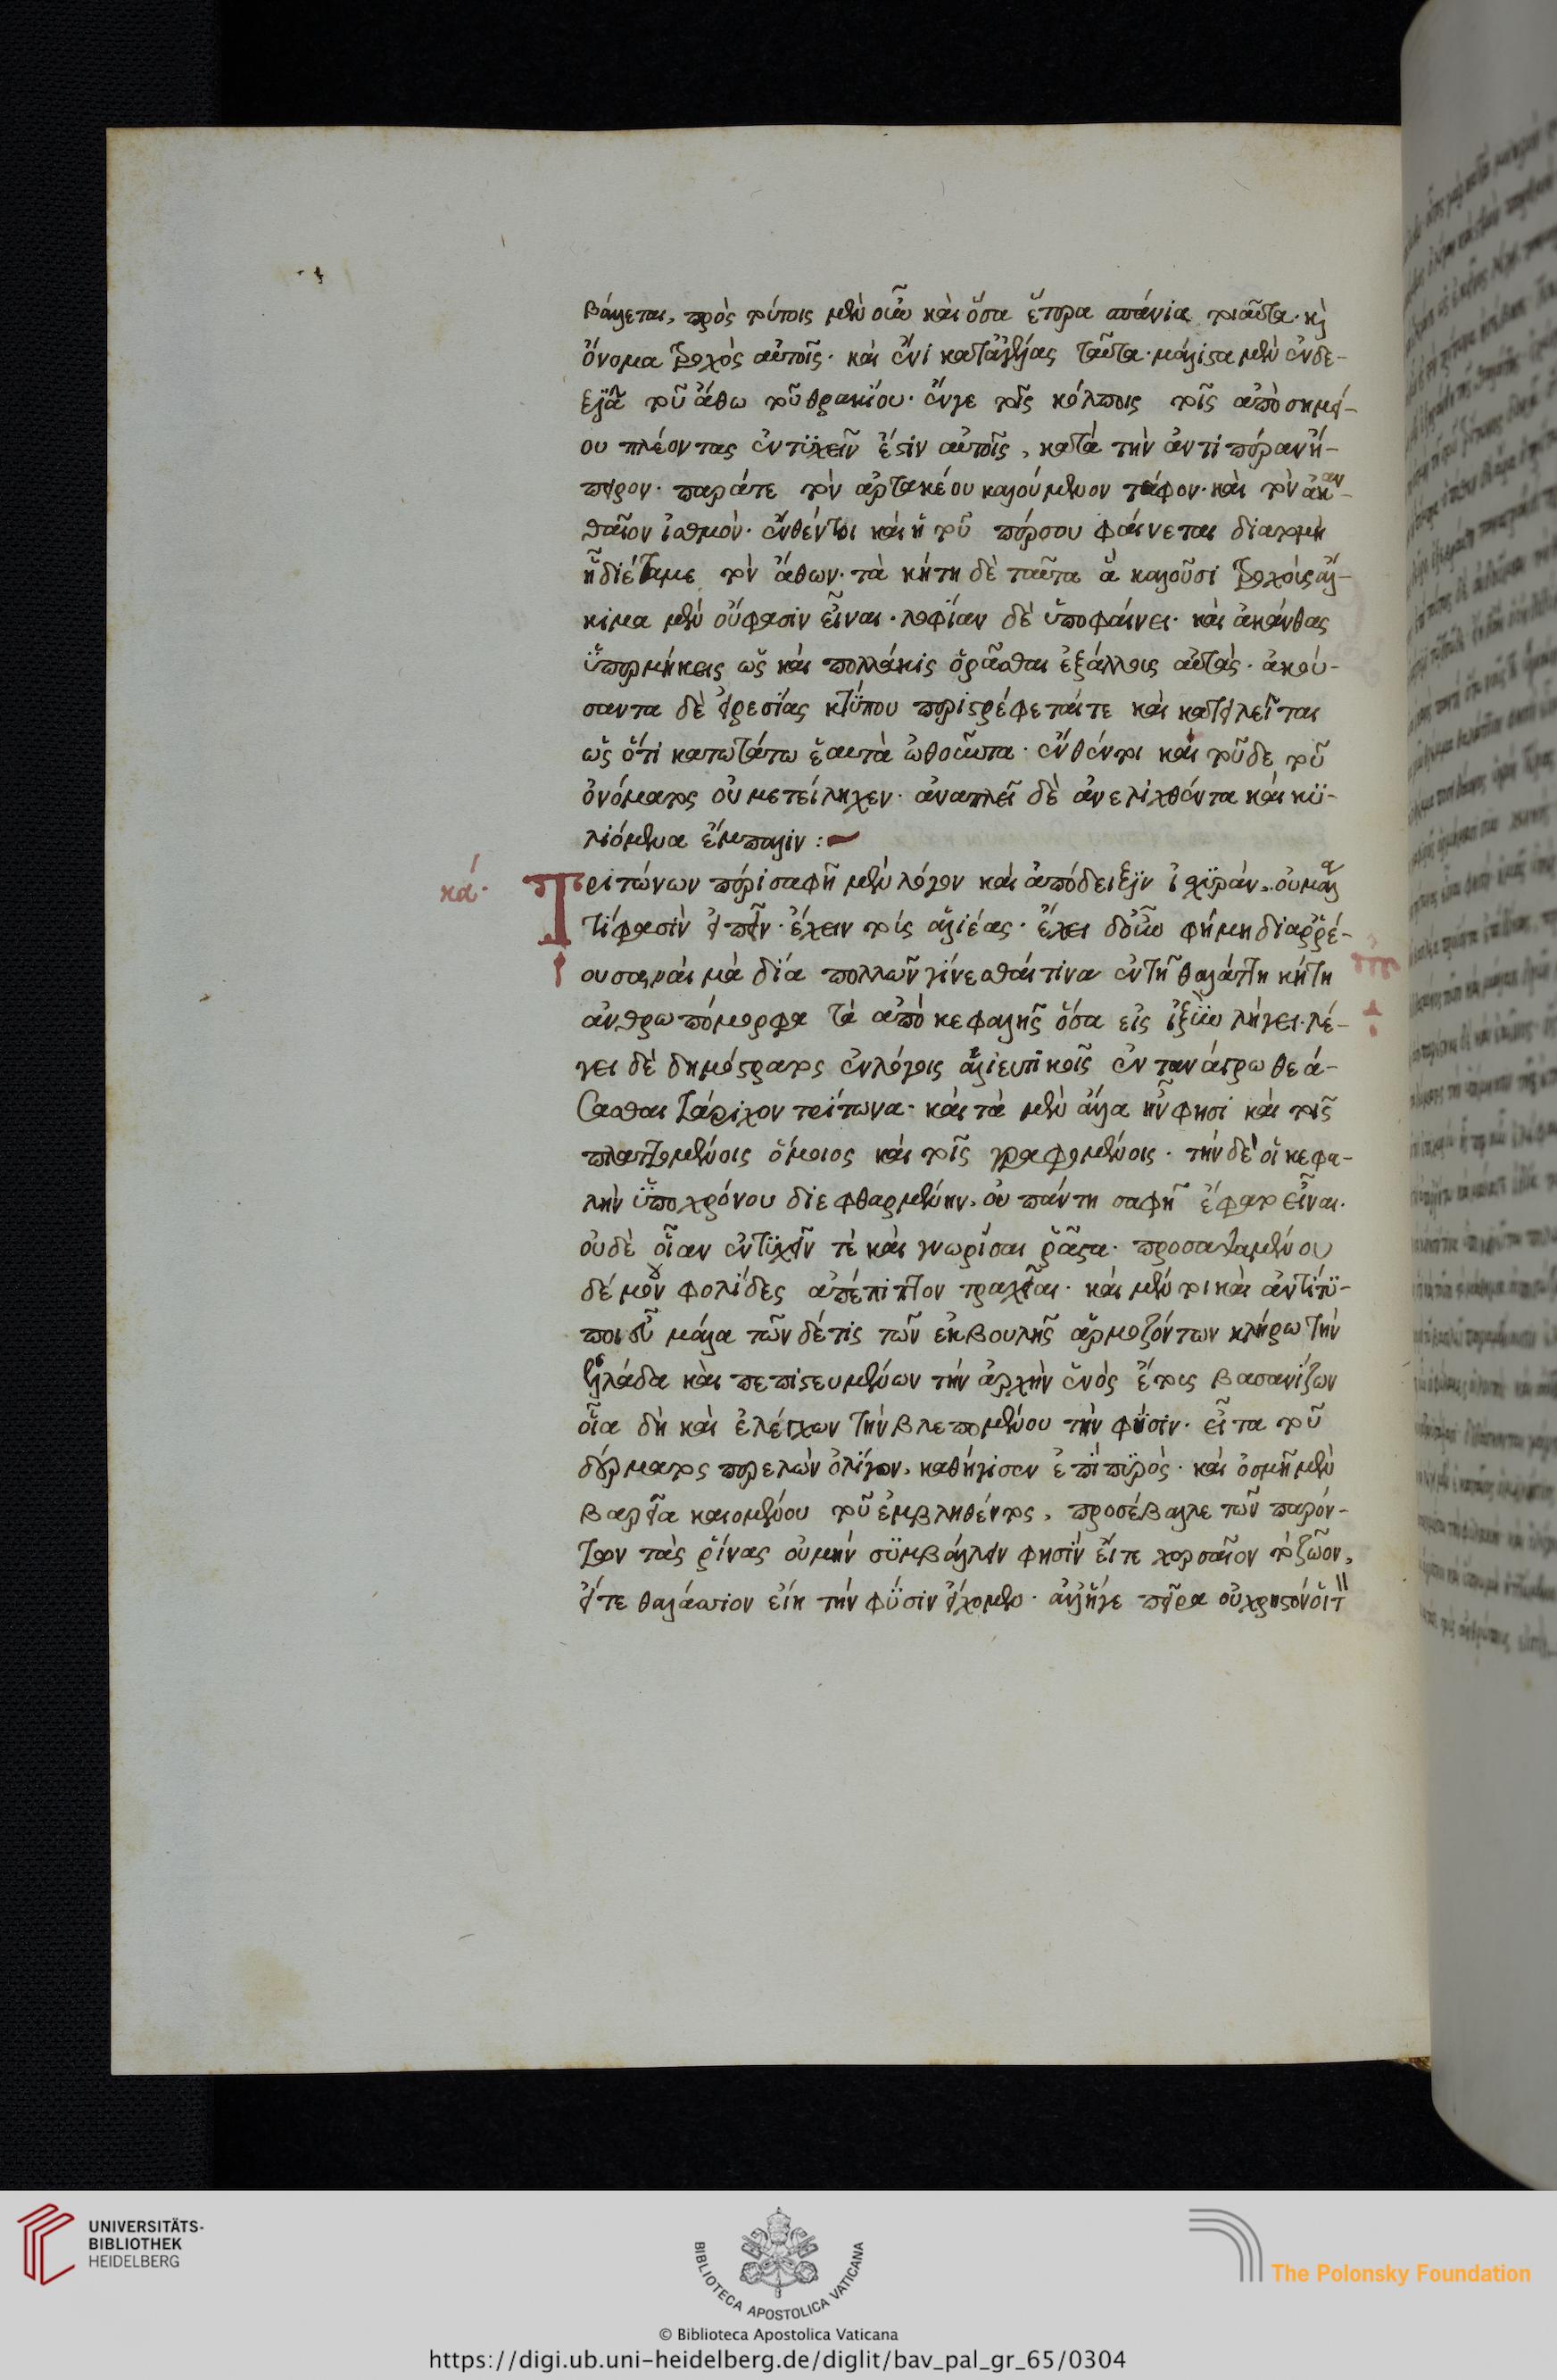 βάλλεται, πρὸς τούτοις μὲν οὖν καὶ ὅσα ἕτερα σπάνια τοιαῦτα· καὶ
ὄνομα τροχὸς αὐτοῖς· καὶ ἔνι κατ' ἀγέλας ταῦτα· μάλιστα μὲν ἐν δε-
ξιᾷ τοῦ ἄθω τοῦ θρακίου· ἔν γε τοῖς κόλποις τοῖς ἀπὸ σιγεί-
ου πλέοντας ἐντυχεῖν ἔστιν αὐτοῖς, κατὰ τὴν ἀντιπέραν ἤ-
πειρον· παρά τε τὸν ἀρτακέου καλούμενον τάφον· καὶ τὸν ἀκαν-
θαῖον ἰσθμὸν· ἔνθέντοι καὶ ἡ τοῦ πέρσου φαίνεται διατομὴ
ἧ διέταμε τὸν ἄθων· τὰ κήτη δὲ ταῦτα ἃ καλοῦσι τροχούς ἄλ-
κιμα μὲν οὔφασιν εἶναι· λοφίαν δὲ ὑποφαίνει· καὶ ἀκάνθας
ὑπερμήκεις ὡς καὶ πολλάκις ὁρᾶσθαι ἐξάλλοις αὐτάς· ἀκού-
σαντα δὲ εἰρεσίας κτύπου περιστρέφεταί τε καὶ κατειλεῖται
ὡς ὅτι κατωτάτω ἑαυτὰ ὠθοῦντα· ἔνθέν τοι καὶ τοῦδε τοῦ
ὀνόματος οὐ μετείληχεν· ἀναπλεῖ δὲ ἀνελιχθέντα καὶ κυ-
λιόμενα ἔμπαλιν :~
κα·
Τριτώνων πέρι σαφῆ μὲν λόγον καὶ ἀπόδειξιν ἰσχυράν, οὐ μάλα
τί φασὶν εἰπεῖν· ἔχειν τοὺς ἁλιέας· ἔχει δοὖν φήμη διαρρέ-
ουσα, καὶ μὰ δία πολλῶν γίνεσθαί τινα ἐν τῇ θαλάττῃ κήτη
ἀνθρωπόμορφα τὰ ἀπὸ κεφαλῆς ὅσα εἰς ἰξῦν λήγει· λέ-
γει δὲ δημόστρατος ἐν λόγοις ἁλιευτικοῖς ἐν τανάγρω θεά-
σασθαι τάριχον τρίτωνα· καὶ τὰ μὲν ἄλλα ἦν φησὶ καὶ τοῖς
πλαττομένοις ὅμοιος καὶ τοῖς γραφομένοις· τὴν δέ οἱ κεφα-
λὴν ὑπο χρόνου διεφθαρμένην, οὐ πάντη σαφῆ ἔφατο εἶναι·
οὐδὲ οἵαν ἐντυχεῖν τὲ καὶ γνωρίσαι ῥᾷστα· προσαψαμένου
δέ μου φολίδες ἀπέπιπτον τραχεῖαι· καὶ μέν τοι καὶ ἀντίτυ-
ποι εὖ μάλα τῶν δέ τις τῶν ἐκ βουλῆς ἁρμοζόντων κλήρω τὴν
ἑλλάδα καὶ πεπιστευμένων τὴν ἀρχὴν ἑνὸς ἔτους βασανίζων
οἷα δὴ καὶ ἐλέγχων τὴν βλεπομένου τὴν φύσιν· εἶτα τοῦ
δέρματος περελὼν ὀλίγον, καθήγισεν ἐπὶ πυρὸς· καὶ ὀσμὴ μὲν
βαρεῖα καιομένου τοῦ ἐμβληθέντος, προσέβαλλε τῶν παρόν-
των τὰς ῥίνας οὐ μήν συμβάλλειν φησὶν εἴτε χερσαῖον τὸ ζῶον,
εἴτε θαλάττιον εἴη τὴν φύσιν εἴχομεν· ἀλλ' ἥγε πεῖρα οὐ χρηστόν οἱ τ
UNIVERSITÄTS-
BIBLIOTHEK
HEIDELBERG
BIBLIOTECA APOSTOLICA VATICANA
The Polonsky Foundation
© Biblioteca Apostolica Vaticana
https://digi.ub.uni-heidelberg.de/diglit/bav_pal_gr_65/0304